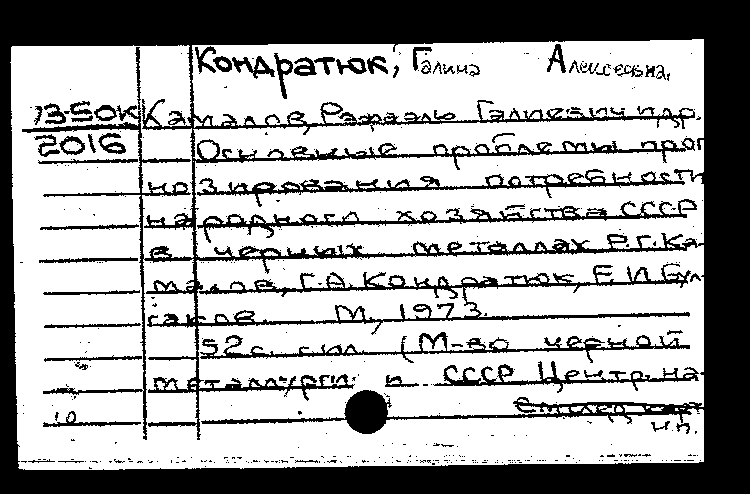 Кондратюк, Галина Алексеевна.
73-50к Камалов, Рафаэль Галиевич и др.
2016 Основные проблемы прог
нозирования потребности
народного хозяйства СССР
в черных металлах Р.Г.Ка-
малов, Г.А.Кондратюк, Е.И.Бул-
гаков. М., 1973.
52 с. с ил. (М-во черной
металлургии СССР Центр. на-
10
н.п.